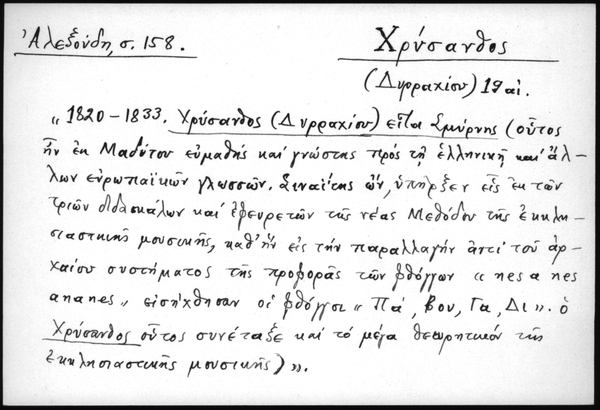 Ἀλεξούδη, σ. 158.
Χρύσανθος
(Δυρραχίου) 19 αἰ.
„ 1820 – 1833. Χρύσανθος (Δυρραχίου) εἶτα Σμύρνης (οὗτος
ἦν ἐκ Μαδύτου εὐμαθὴς καὶ γνώστης πρὸς τῇ ἑλληνικῇ καὶ ἄλ-
λων εὐρωπαϊκῶν γλωσσῶν. Σιναΐτης ὤν, ὑπῆρξεν εἷς ἐκ τῶν
τριῶν διδασκάλων καὶ ἐφευρετῶν τῆς νέας Μεθόδου τῆς ἐκκλη-
σιαστικῆς μουσικῆς, καθ' ἣν εἰς τὴν παραλλαγὴν ἀντὶ τοῦ ἀρ-
χαίου συστήματος τῆς προφορᾶς τῶν φθόγγων « nes a nes
ananes » εἰσήχθησαν οἱ φθόγγοι « Πά, βου, Γα, Δι ». ὁ
Χρύσανθος οὗτος συνέταξε καὶ τὸ μέγα θεωρητικὸν τῆς
ἐκκλησιαστικῆς μουσικῆς) ».